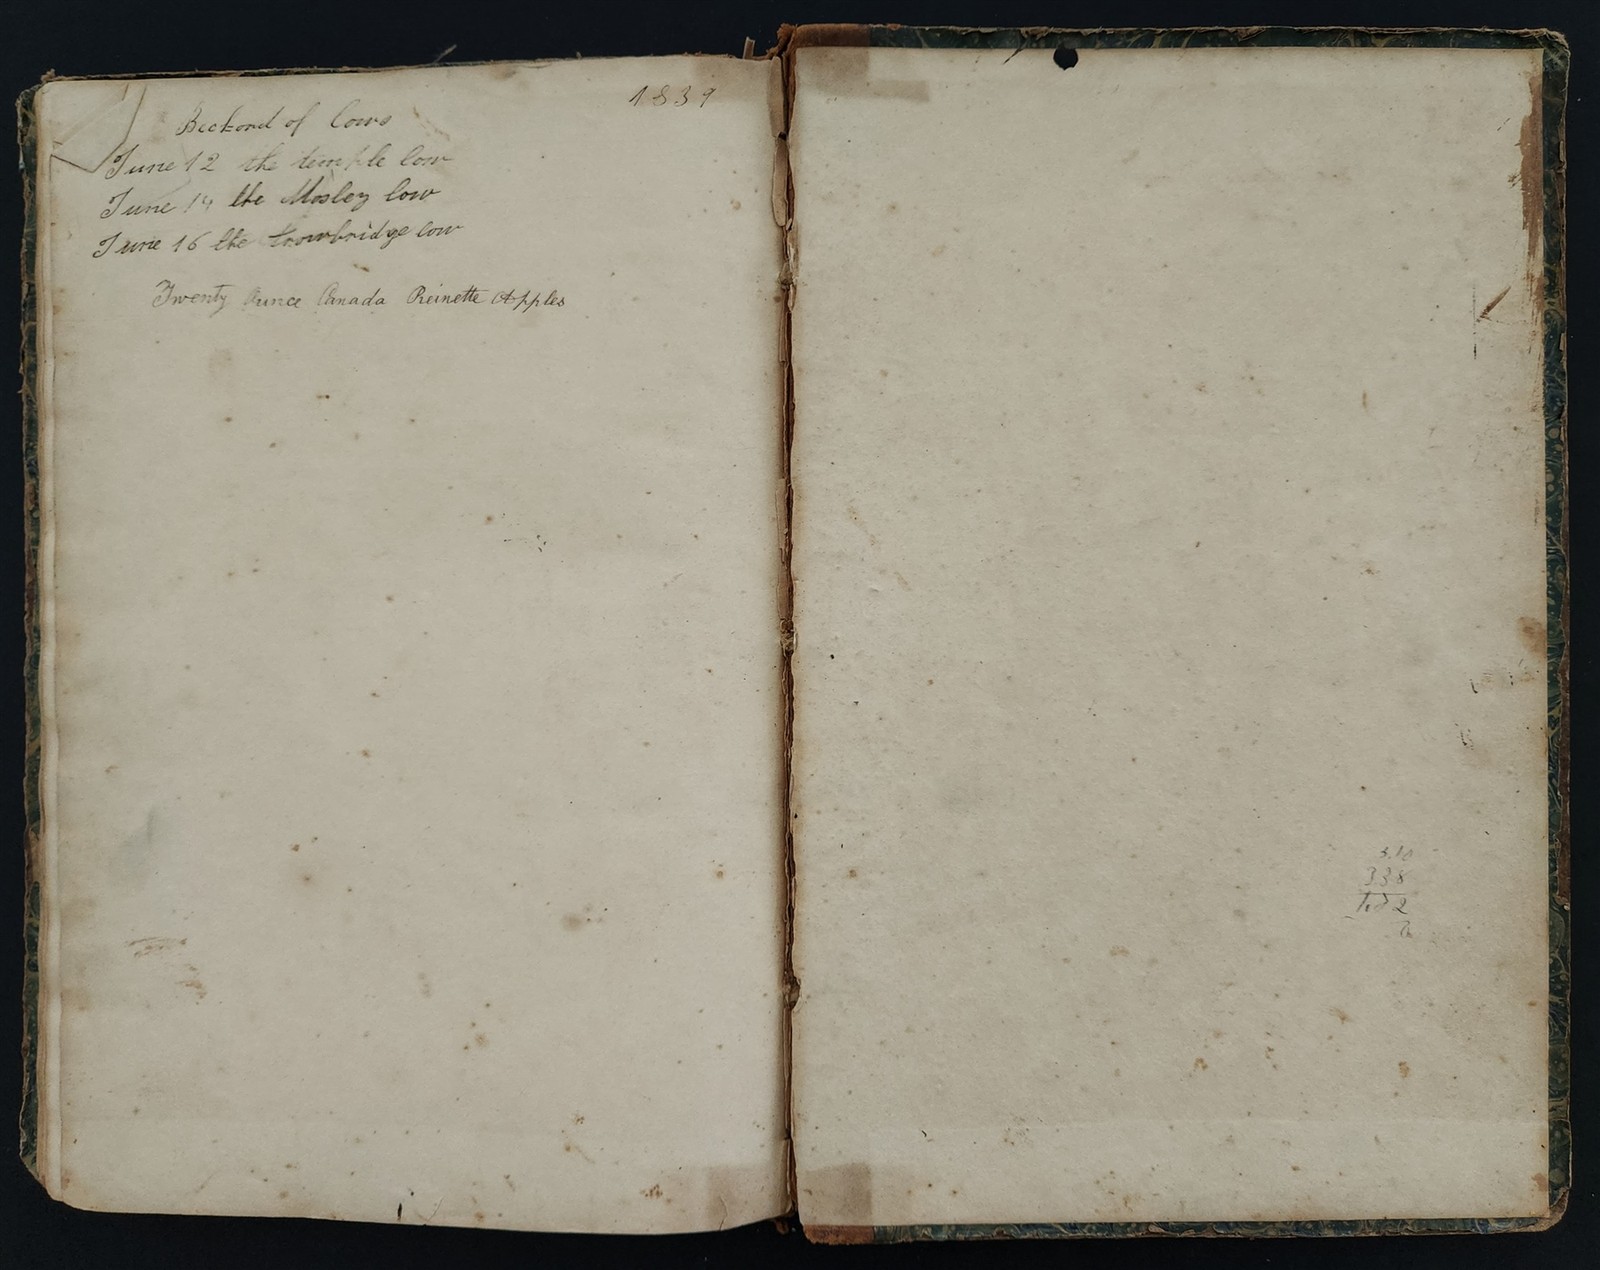 1839
Reckord of Cows
June 12 the temple Cow
June 14 the Mosley Cow
June 16 the trowbridge Cow
Twenty Ounce Canada Reinette Apples
338
2